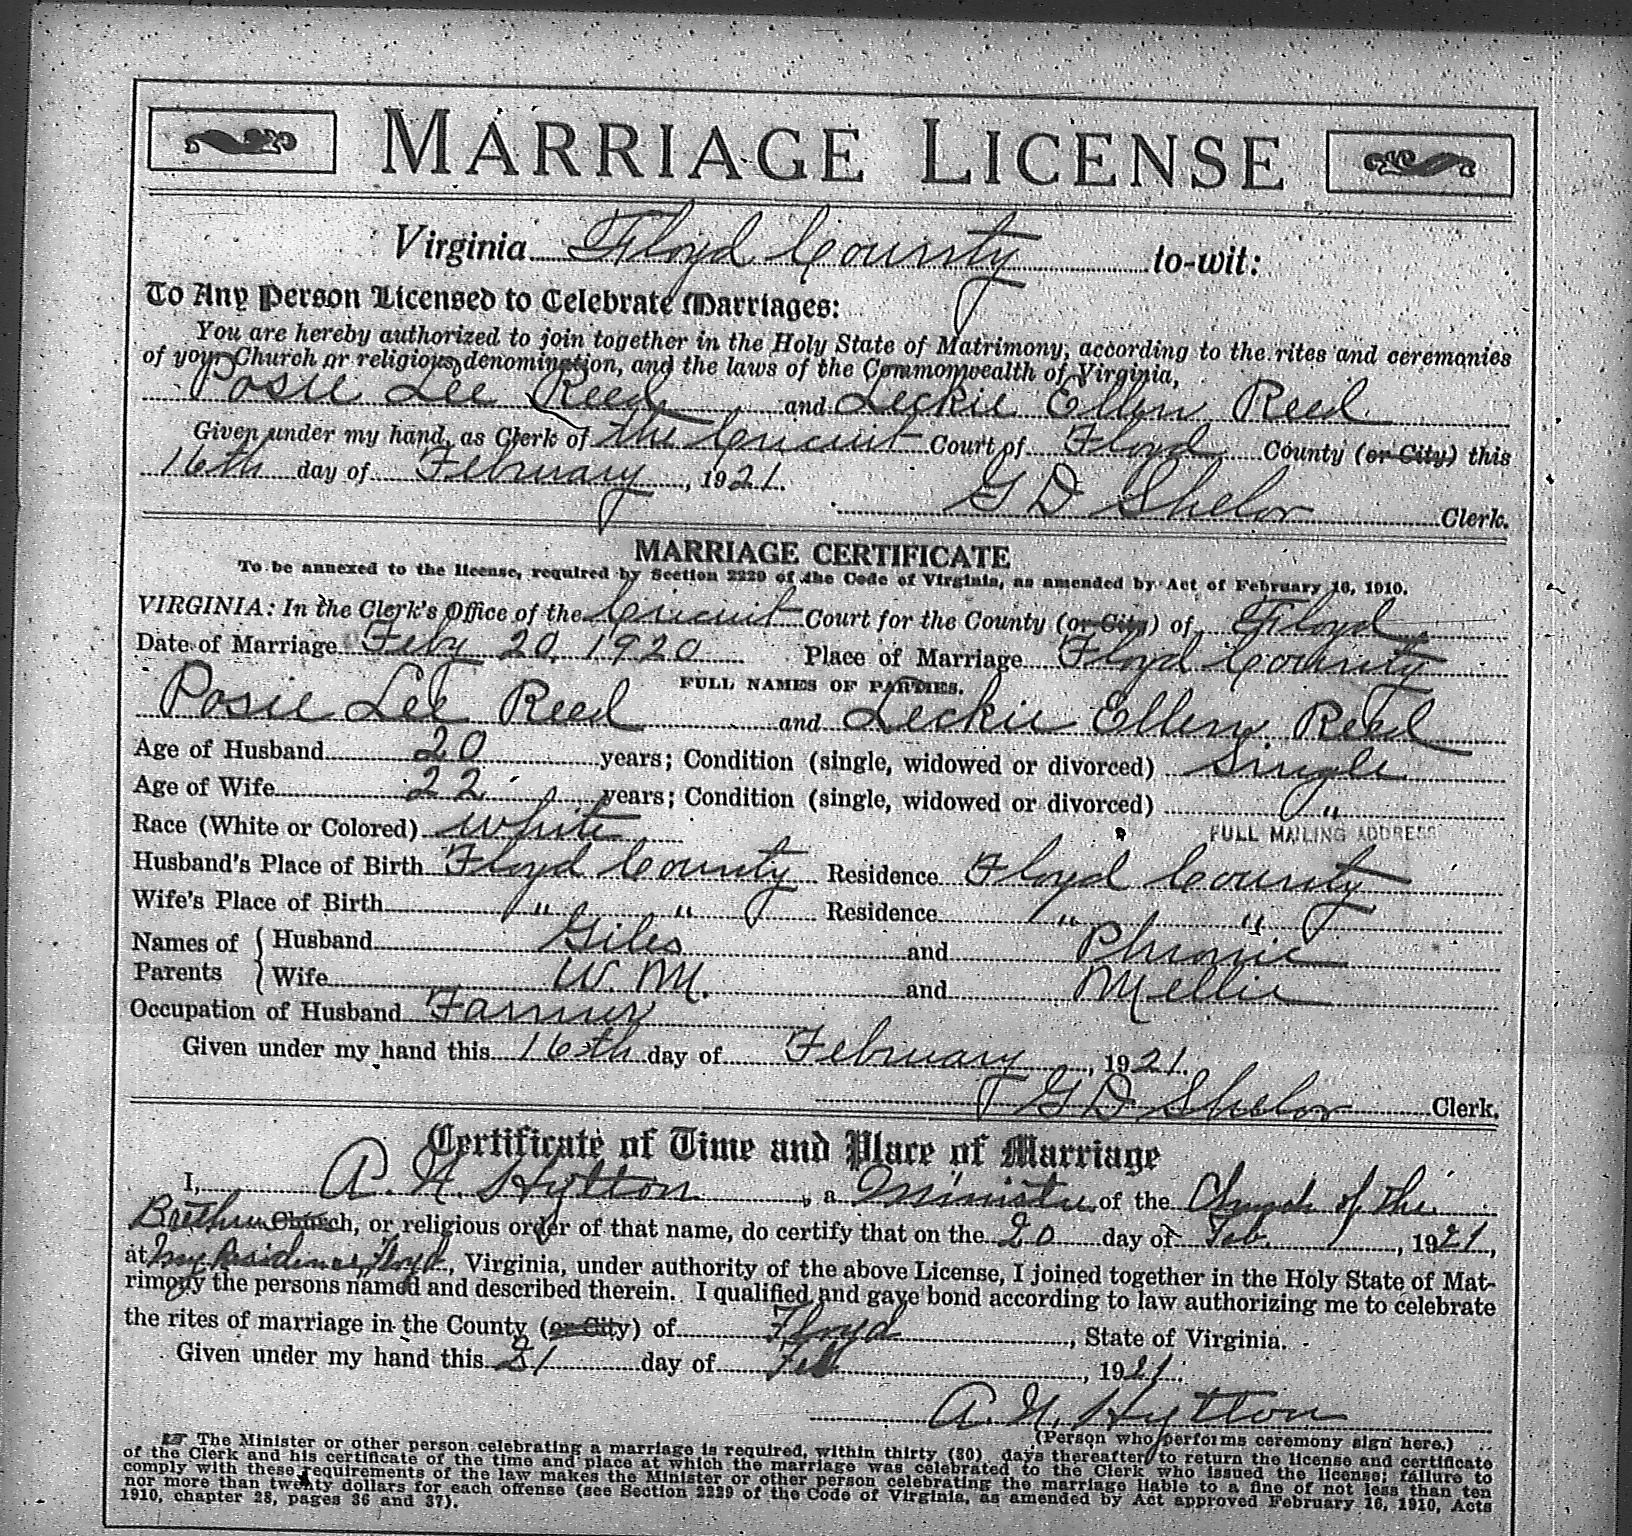 MARRIAGE LICENSE
Virginia Floyd County to-wit:
To Any Person Licensed to Celebrate Marriages:
You are hereby authorized to join together in the Holy State of Matrimony, according to the rites and ceremonies
of your Church or religious denomination, and the laws of the Commonwealth of Virginia,
Posie Lee Reed and Leckie Ellen Reed
Given under my hand, as Clerk of the Circuit Court of Floyd County (or City) this
16th day of February, 1921.
G D Shelor Clerk.
MARRIAGE CERTIFICATE
To be annexed to the license, required by Section 2229 of the Code of Virginia, as amended by Act of February 16, 1910.
VIRGINIA: In the Clerk's Office of the Circuit Court for the County (or City) of Floyd
Date of Marriage Feby 20, 1920 Place of Marriage Floyd County
FULL NAMES OF PARTIES.
Posie Lee Reed and Leckie Ellen Reed
Age of Husband 20 years; Condition (single, widowed or divorced) Single
Age of Wife 22 years; Condition (single, widowed or divorced) "
Race (White or Colored) White FULL MAILING ADDRESS
Husband's Place of Birth Floyd County Residence Floyd County
Wife's Place of Birth " " Residence " "
Names of Parents { Husband Giles and Phronie
Wife W. M. and Mellie
Occupation of Husband Farmer
Given under my hand this 16th day of February, 1921.
G D Shelor Clerk.
Certificate of Time and Place of Marriage
I, A. N. Hylton, a Minister of the Church of the
Brethren Church, or religious order of that name, do certify that on the 20 day of Feb., 1921,
at my Residence, Floyd, Virginia, under authority of the above License, I joined together in the Holy State of Mat-
rimony the persons named and described therein. I qualified and gave bond according to law authorizing me to celebrate
the rites of marriage in the County (or City) of Floyd, State of Virginia.
Given under my hand this 21 day of Feb, 1921.
A. N. Hylton
(Person who performs ceremony sign here.)
☞ The Minister or other person celebrating a marriage is required, within thirty (30) days thereafter to return the license and certificate
of the Clerk and his certificate of the time and place at which the marriage was celebrated to the Clerk who issued the license; failure to
comply with these requirements of the law makes the Minister or other person celebrating the marriage liable to a fine of not less than ten
nor more than twenty dollars for each offense (see Section 2229 of the Code of Virginia, as amended by Act approved February 16, 1910, Acts
1910, chapter 28, pages 36 and 37).